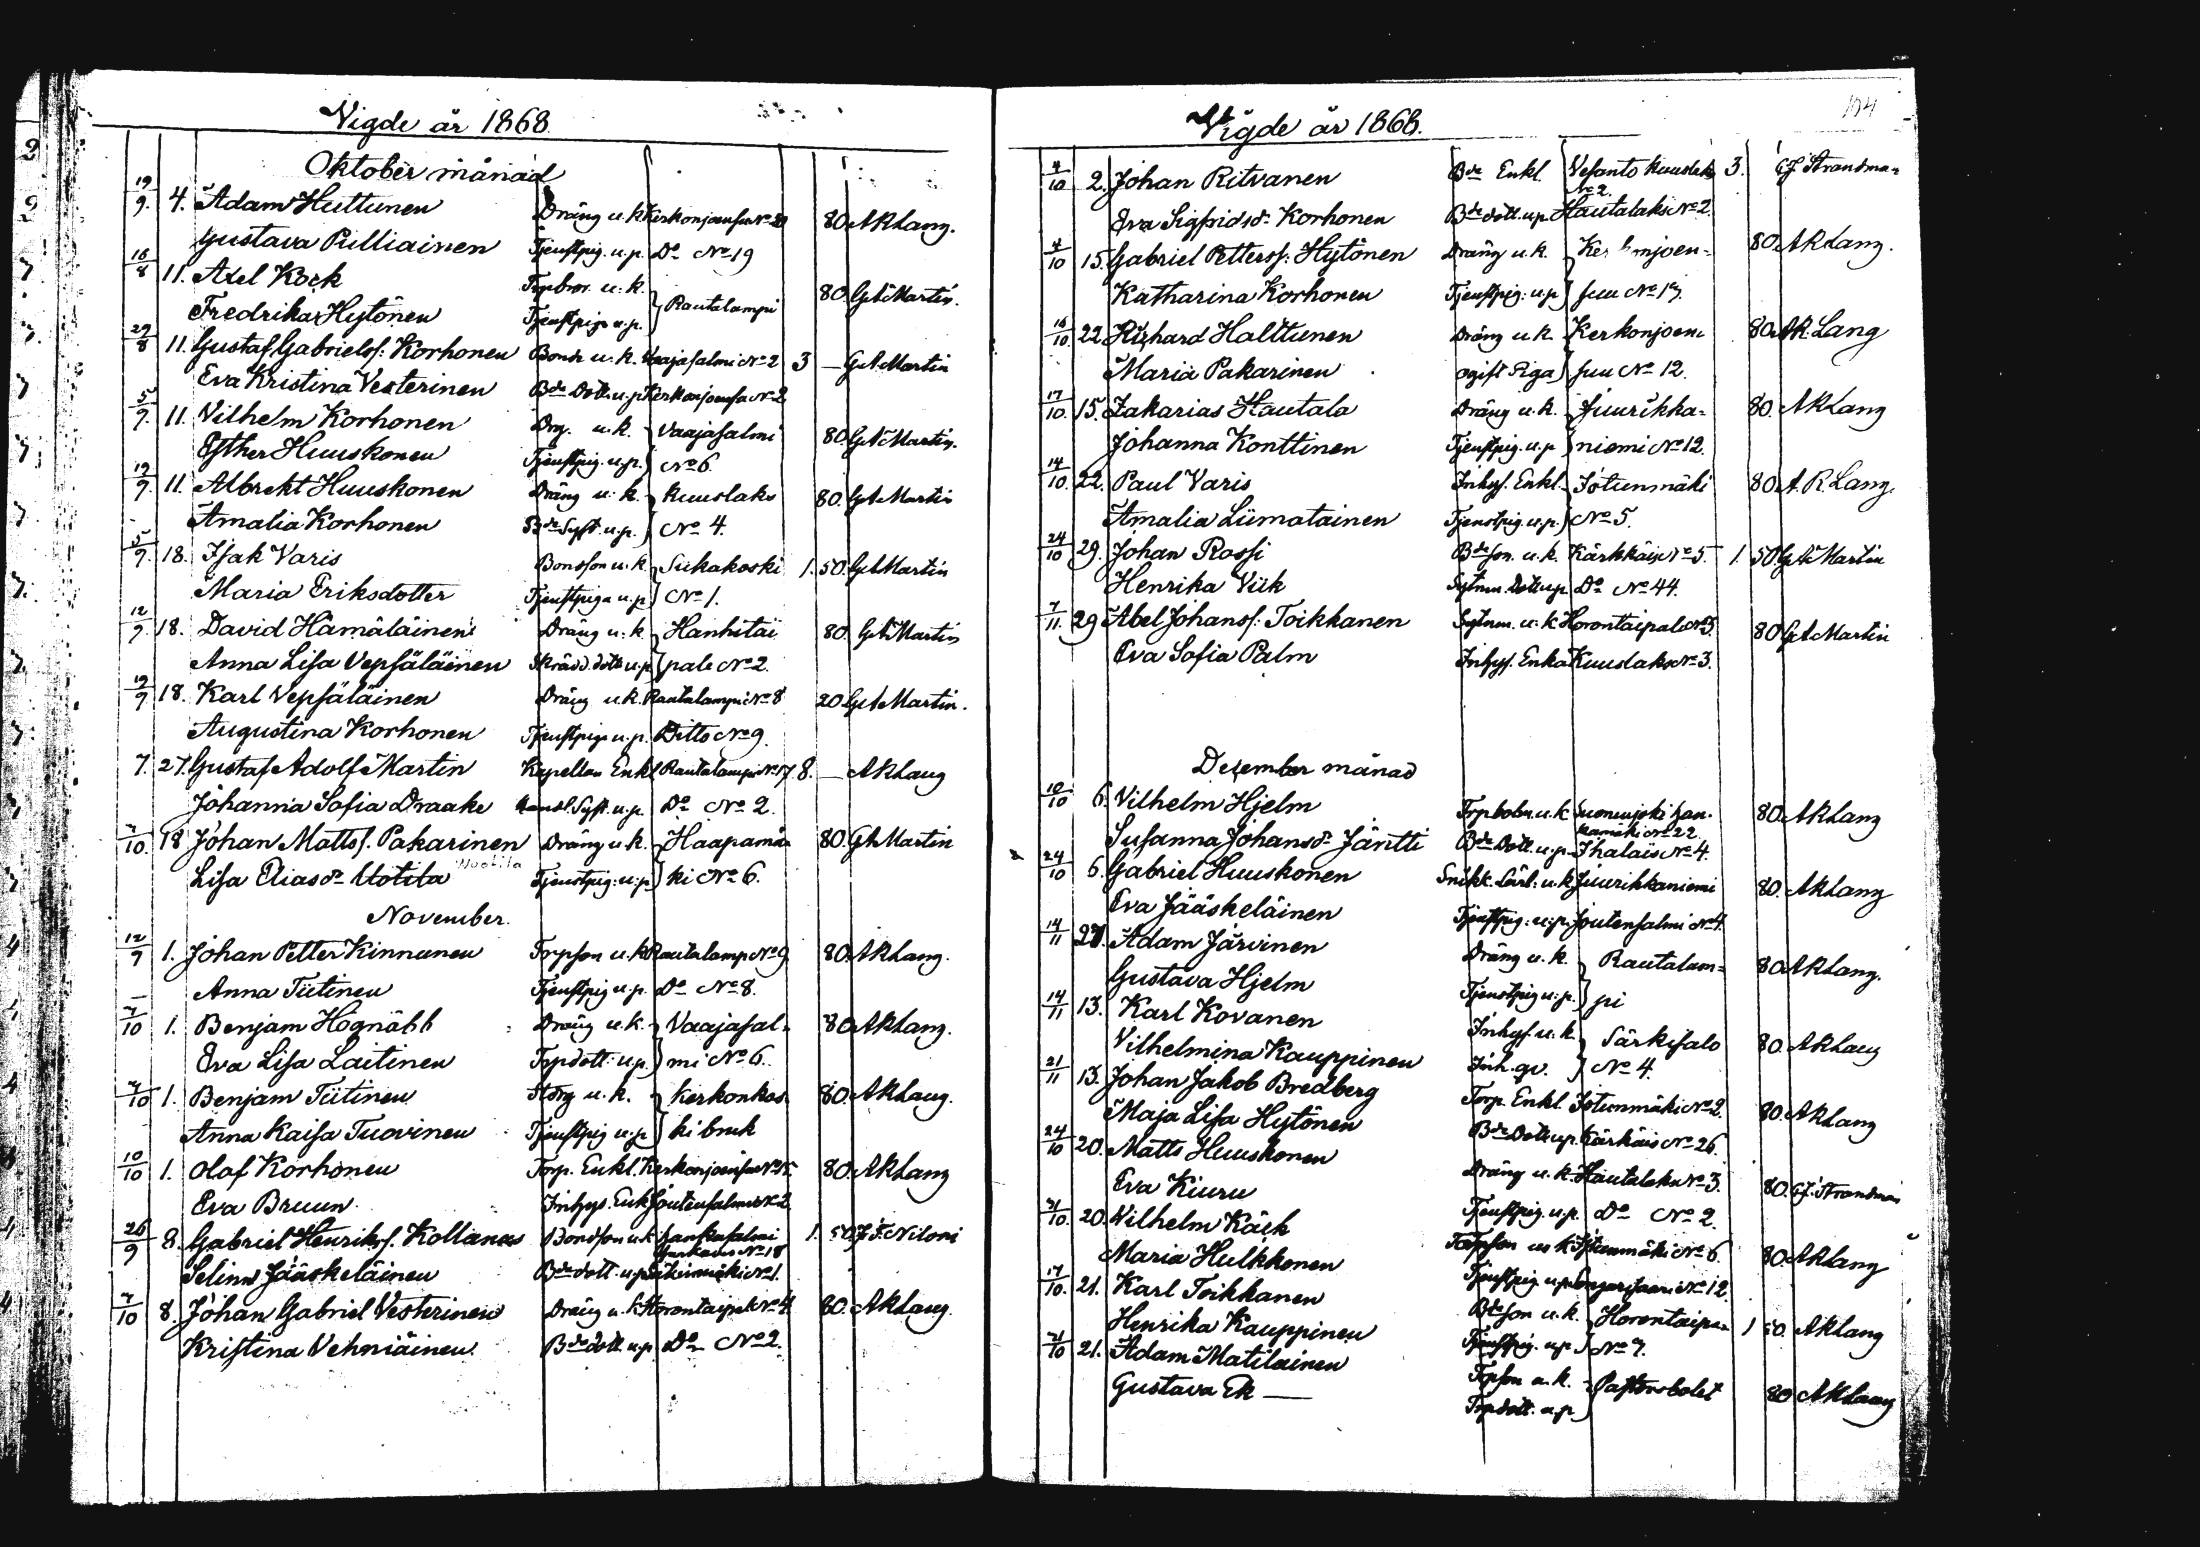 Vigde år 1868.
Oktober månad
19/9. 4. Adam Huttunen Dräng u.k. Kerkonjoensuu No 20 80 AKLang.
Gustava Pulliainen Tjenstpig. u.p. Do No 19
16/8 11. Axel Kock Torpbror. u.k. } Rautalampi 80. GA Martin.
Fredrika Hytönen Tjenstpiga u.p.
29/8 11. Gustaf Gabrielss. Korhonen Bonde u.k. Vaajasalmi No 2 3 — GA Martin
Eva Kristina Vesterinen Bde Dott. u.p. Kerkonjoensu No 2
5/9. 11. Vilhelm Korhonen Drg. u.k. } Vaajasalmi 80. GA Martin.
Esther Huuskonen Tjenstpig. u.p. No 6.
19/9. 11. Albrekt Huuskonen Dräng u.k. } Kuuslaks 80. GA Martin
Amalia Korhonen Bde Syst. u.p. No 4.
5/9. 18. Isak Varis Bondson u.k. } Siikakoski 1. 50. GA Martin
Maria Eriksdotter Tjenstpiga u.p. No 1.
12/9. 18. David Hämäläinen Dräng u.k. } Hanhitai 80. GA Martin
Anna Lisa Vepsäläinen Skrädd. dott. u.p. pale No 2.
19/9 18. Karl Vepsäläinen Dräng u.k. Rautalampi No 8 20 GA Martin.
Augustina Korhonen Tjenstpiga u.p. Ditto No 9.
7. 27. Gustaf Adolf Martin Kapellan Enkl. Rautalampi No 17 8. — AKLang
Johanna Sofia Draake Syst. u.p. Do No 2.
7/10. 18 Johan Matts s. Pakarinen Dräng u.k. } Haapamä= 80. GA Martin
Lisa Elias dr Uotila Tjenstpig. u.p. ki No 6.
November.
12/9 1. Johan Petter Kinnunen Torpson u.k. Rautalamp No 9 80. AKLang.
Anna Tiitinen Tjenstpig u.p. Do No 8.
7/10 1. Benjam Högnäbb Dräng u.k. } Vaajasal= 80 AKLang.
Eva Lisa Laitinen Torpdott. u.p. mi No 6.
7/10 1. Benjam Tiitinen u.k. } Kerkonkos 80. AKLang.
Anna Kaisa Tuovinen Tjenstpig u.p. ki bruk
10/10 1. Olof Korhonen Torp. Enkl. Kerkonjoensuu No 15 80. AKLang
Eva Bruun Inhys. Enk. Joutensalmi No 2
26/9 8. Gabriel Henrikss. Kollanen Bondson u.k. Hankasalmi No 18 1. 50 Niloni
Selina Jääskeläinen Bde dott. u.p. No 1.
7/10 8. Johan Gabriel Vesterinen Dräng u.k. Horontaipale No 4. 80. AKLang.
Kristina Vehniäinen Bde dott. u.p. Do No 2.
Vigde år 1868.
104
4/10 2. Johan Ritvanen Bde Enkl. Vesanto Kuuslaks No 2. 3. Strandman
Eva Sigfrids dr Korhonen Bde dott. u.p. Hautalaks No 2.
4/10 15. Gabriel Petters s. Hytönen Dräng u.k. } Kerkonjoen= 80. AKLang.
Katharina Korhonen Tjenstpig. u.p. suu No 19.
16/10 22. Rikhard Halttunen Dräng u.k. } Kerkonjoen 80. AK. Lang
Maria Pakarinen ogift Piga suu No 12.
17/10. 15. Zakarias Hautala Dräng u.k. } Juurikka= 80. AKLang
Johanna Konttinen Tjenstpig. u.p. niemi No 12.
14/10. 22. Paul Varis Inhys. Enkl. } Istunmäki 80. A.K. Lang.
Amalia Liimatainen Tjenstpig. u.p. No 5.
24/10 29. Johan Rossi Bdeson. u.k. Kärkkäis No 5. 1. 50. GA Martin
Henrika Viik Dott. u.p. Do No 44.
7/11. 29 Abel Johans s. Toikkanen Sytnm. u.k. Horontaipale No 3. 80 GA Martin
Eva Sofia Palm Inhys. Enka Kuuslaks No 3.
Desember månad
10/10 6. Vilhelm Hjelm u.k. Suonenjoki No 22. 80. AKLang
Susanna Johans dr Jäntti Bde Dott. u.p. Ihalais No 4.
24/10 6. Gabriel Huuskonen Snikk. Lärl. u.k. Juurikkaniemi 80. AKLang
Eva Jääskeläinen Tjenstpig. u.p. Joutensalmi No 4.
14/11 27. Adam Järvinen Dräng u.k. } Rautalam= 80 AKLang.
Gustava Hjelm Tjenstpig u.p. pi
14/11 13. Karl Kovanen Inhys. u.k. } Särkisalo 80. AKLang
Vilhelmina Kauppinen Inh. qv. No 4.
21/11 13. Johan Jakob Bredberg Torp. Enkl. Istunmäki No 2. 80. AKLang
Maja Lisa Hytönen Bde Dott. u.p. Kärkäis No 26.
24/10 20. Matts Huuskonen Dräng u.k. Hautalaks No 3. 80. Strandman
Eva Kiuru Tjenstpig. u.p. Do No 2.
21/10. 20. Vilhelm Käck Torpson u.k. Istunmäki No 6. 80. AKLang
Maria Hulkkonen Tjenstpig u.p. No 12.
17/10. 21. Karl Toikkanen Bdeson u.k. } Horontaipa= 1 50. AKLang
Henrika Kauppinen Tjenstpig. u.p. No 7.
21/10 21. Adam Matilainen Torpson u.k. } Pastorsbolet 80 AKLang
Gustava Ek — Torpdott. u.p.